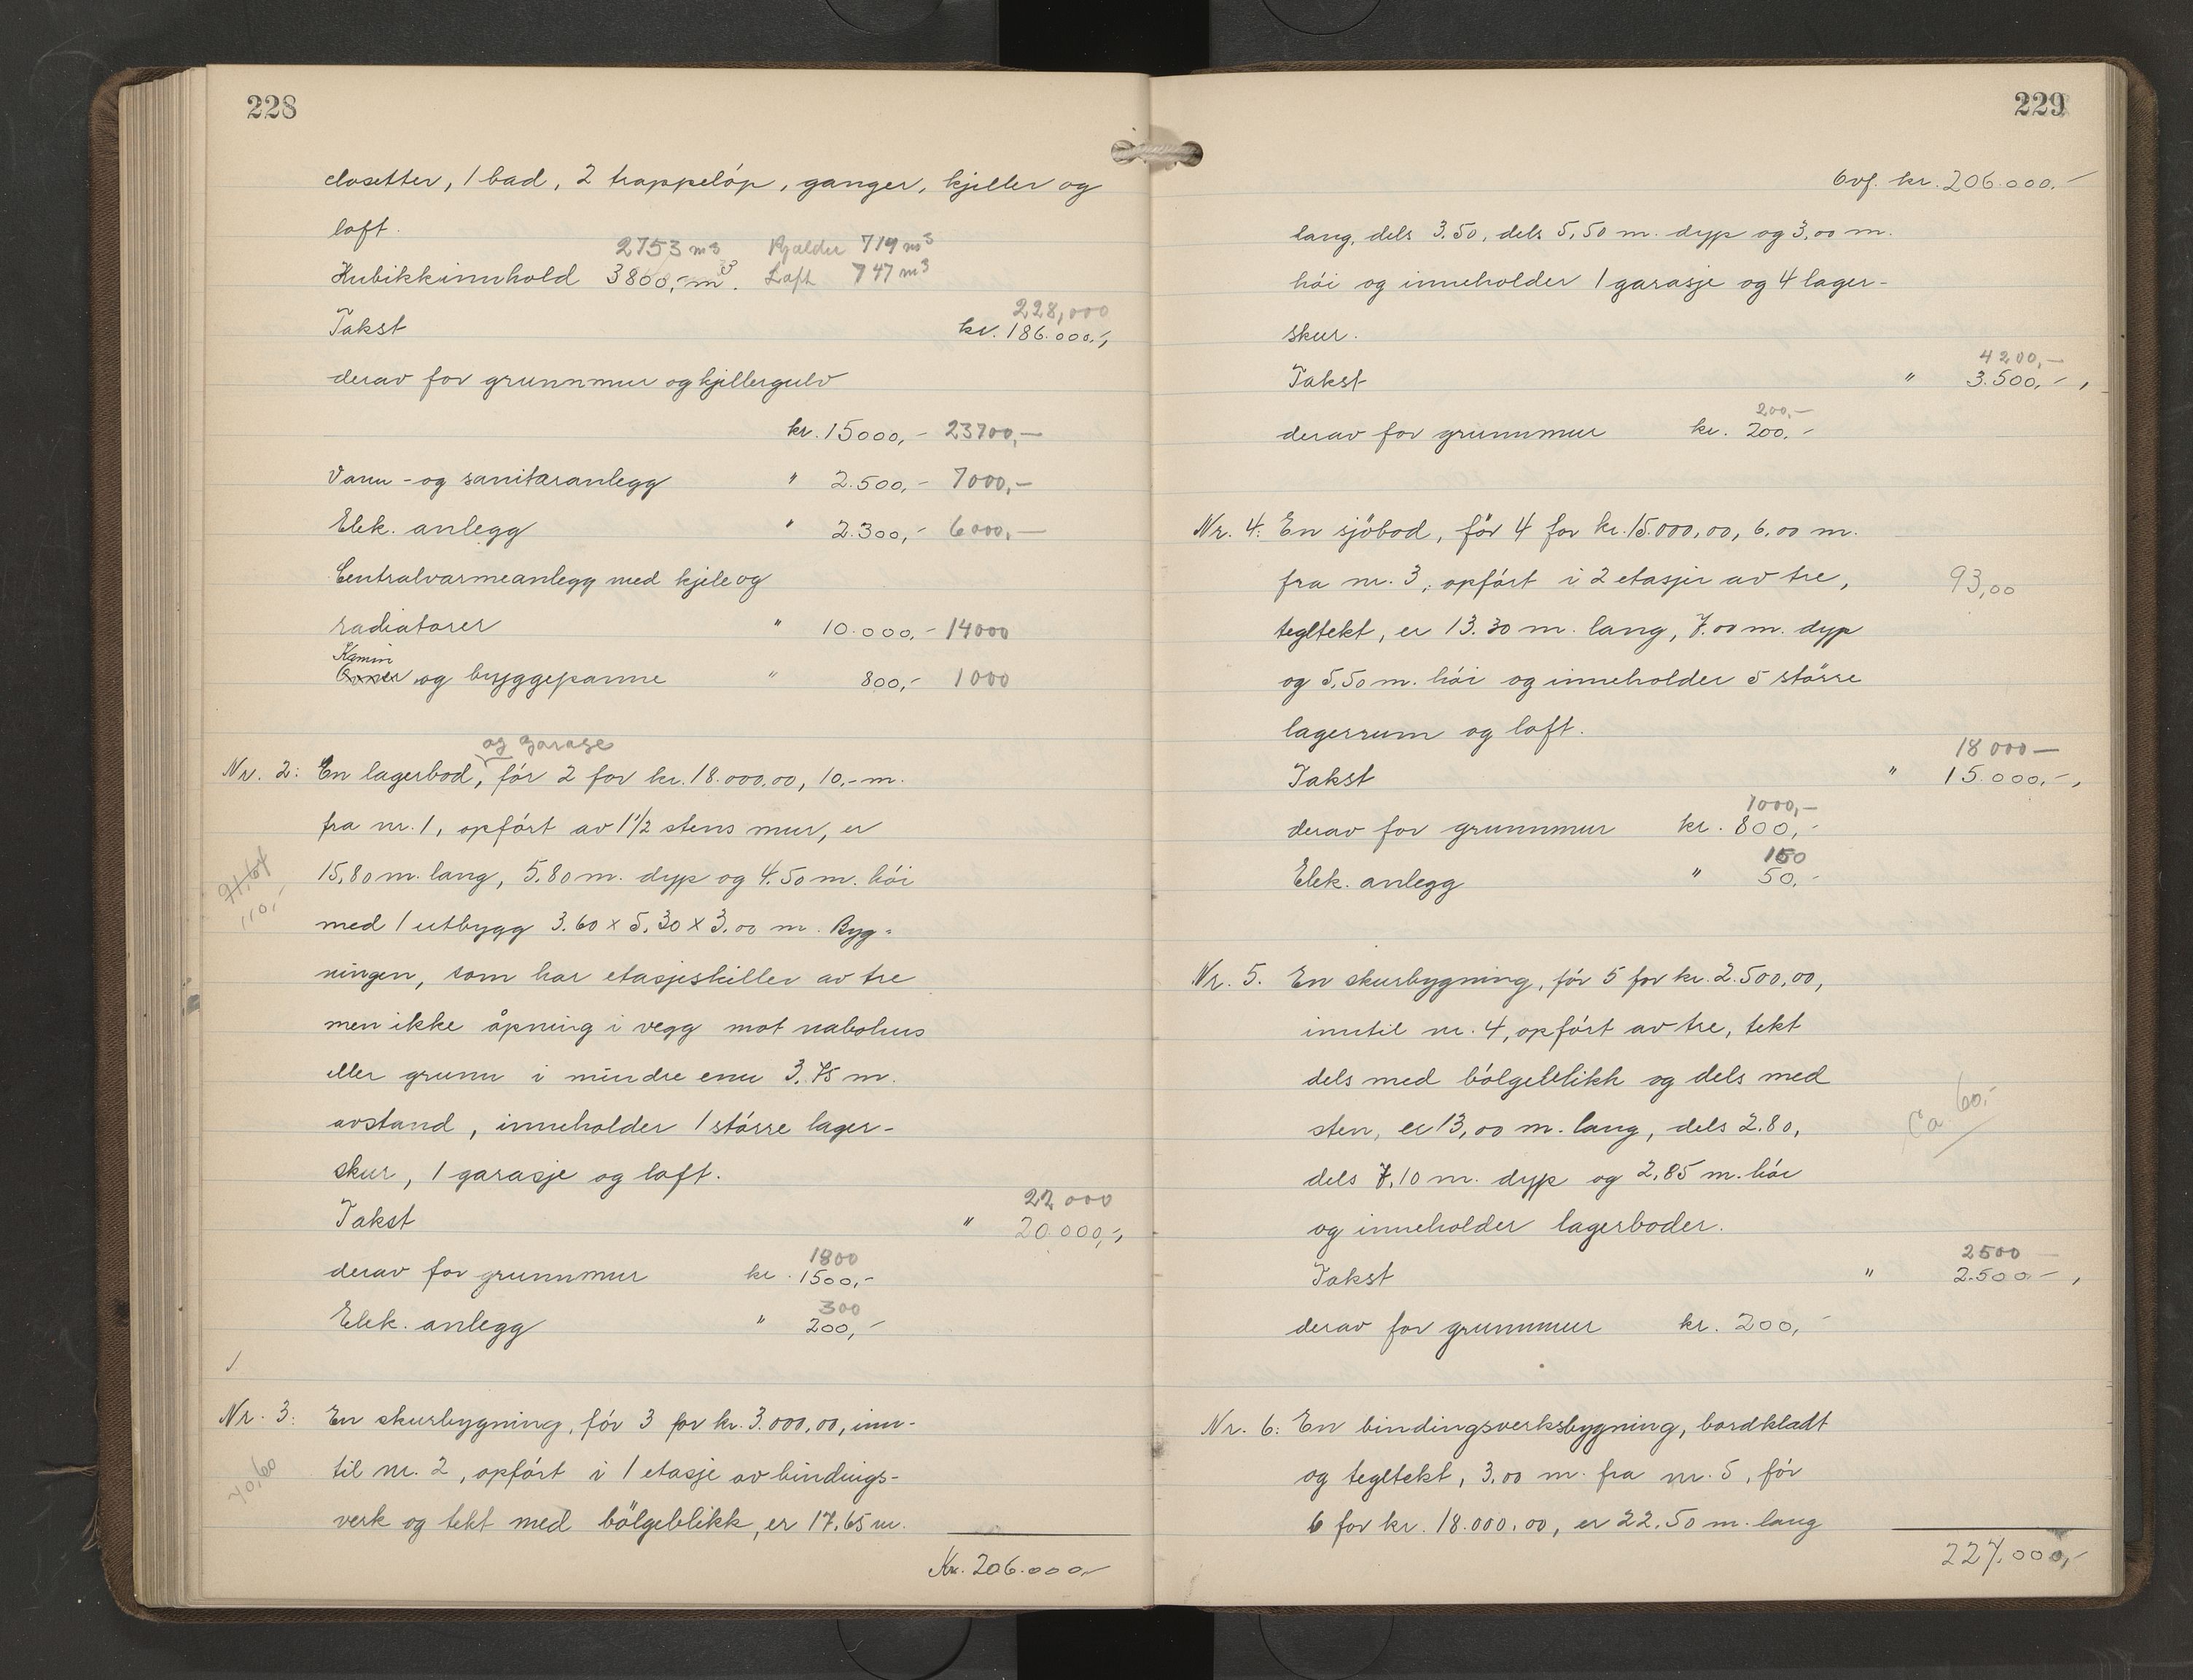 228
closetter, 1 bad, 2 trappeløp, ganger, kjeller og
loft.
2753 m3 Kjælder 719 m3
Kubikkinnhold 3860,- m3. Loft 747 m3
228,000
Takst kr. 186.000,-,
derav for grunnmur og kjellergulv
kr. 15000,- 23700,-
Vann- og sanitæranlegg " 2.500,- 7000,-
Elek. anlegg " 2.300,- 6000,-
Centralvarmeanlegg med kjele og
radiatorer " 10.000,- 14000
Kamin
Ovner og bryggepanne " 800,- 1000
og garage
Nr. 2: En lagerbod, før 2 for kr. 18.000,00, 10,- m.
fra nr. 1, opført av 1 1/2 stens mur, er
91,64
15,80 m. lang, 5,80 m. dyp og 4.50 m. høi
110,-
med 1 utbygg 3.60 x 5,30 x 3,00 m. Byg-
ningen, som har etasjeskiller av tre
men ikke åpning i vegg mot nabohus
eller grunn i mindre enn 3,75 m.
avstand, inneholder 1 større lager-
skur, 1 garasje og loft.
22 000
Takst " 20.000,-,
1800
derav for grunnmur kr. 1500,-
300
Elek. anlegg " 200,-
Nr. 3: En skurbygning, før 3 for kr. 3.000,00, inn-
70,60
til nr. 2, opført i 1 etasje av bindings-
verk og tekt med bölgeblikk, er 17,65 m.
Kr. 206.000,-
229
Ovf. kr. 206.000,-
lang, dels 3,50, dels 5,50 m. dyp og 3,00 m.
høi og inneholder 1 garasje og 4 lager-
skur.
4200,-
Takst " 3.500,-,
200,-
derav for grunnmur kr. 200,-
Nr. 4: En sjöbod, før 4 for kr. 15.000,00, 6,00 m.
fra nr. 3, opført i 2 etasjer av tre,
93,00
tegltekt, er 13.30 m. lang, 7.00 m. dyp
og 5,50 m. høi og inneholder 5 større
lagerrum og loft.
18 000-
Takst " 15.000,-,
1000,-
derav for grunnmur kr. 800,-
150
Elek. anlegg " 50,-
Nr. 5. En skurbygning, før 5 for kr. 2.500,00,
inntil nr. 4, opført av tre, tekt
dels med bølgeblikk og dels med
ca 60,-
sten, er 13,00 m. lang, dels 2.80,
dels 7,10 m. dyp og 2,85 m. høi
og inneholder lagerboder.
2500
Takst " 2.500-,
derav for grunnmur kr. 200,-
Nr. 6: En bindingsverksbygning, bordkladt
og tegltekt, 3,00 m. fra nr. 5, før
6 for kr. 18.000,00, er 22,50 m. lang
227.000,-